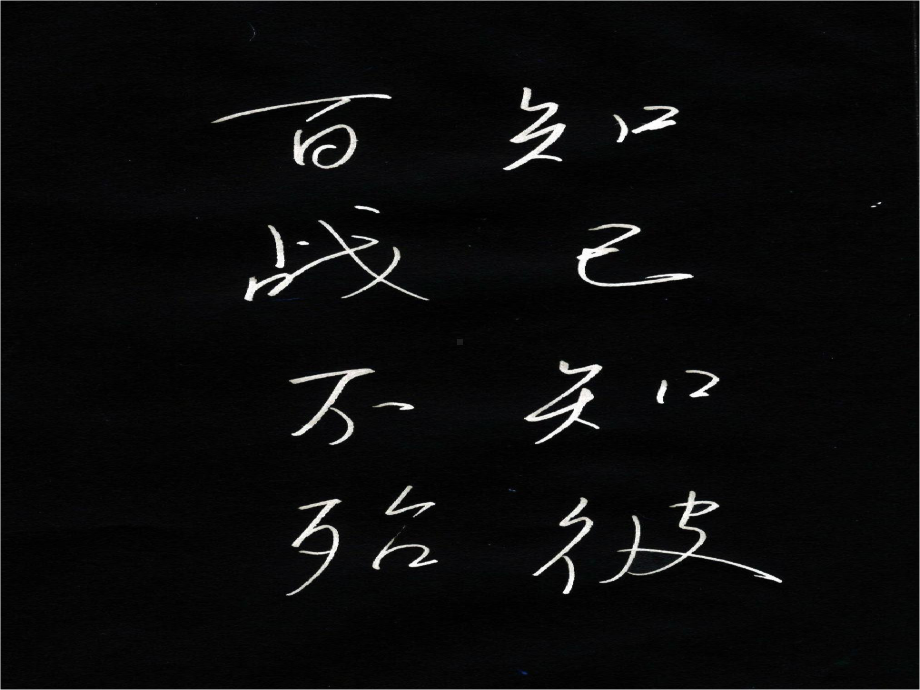 知己知彼
百战不殆